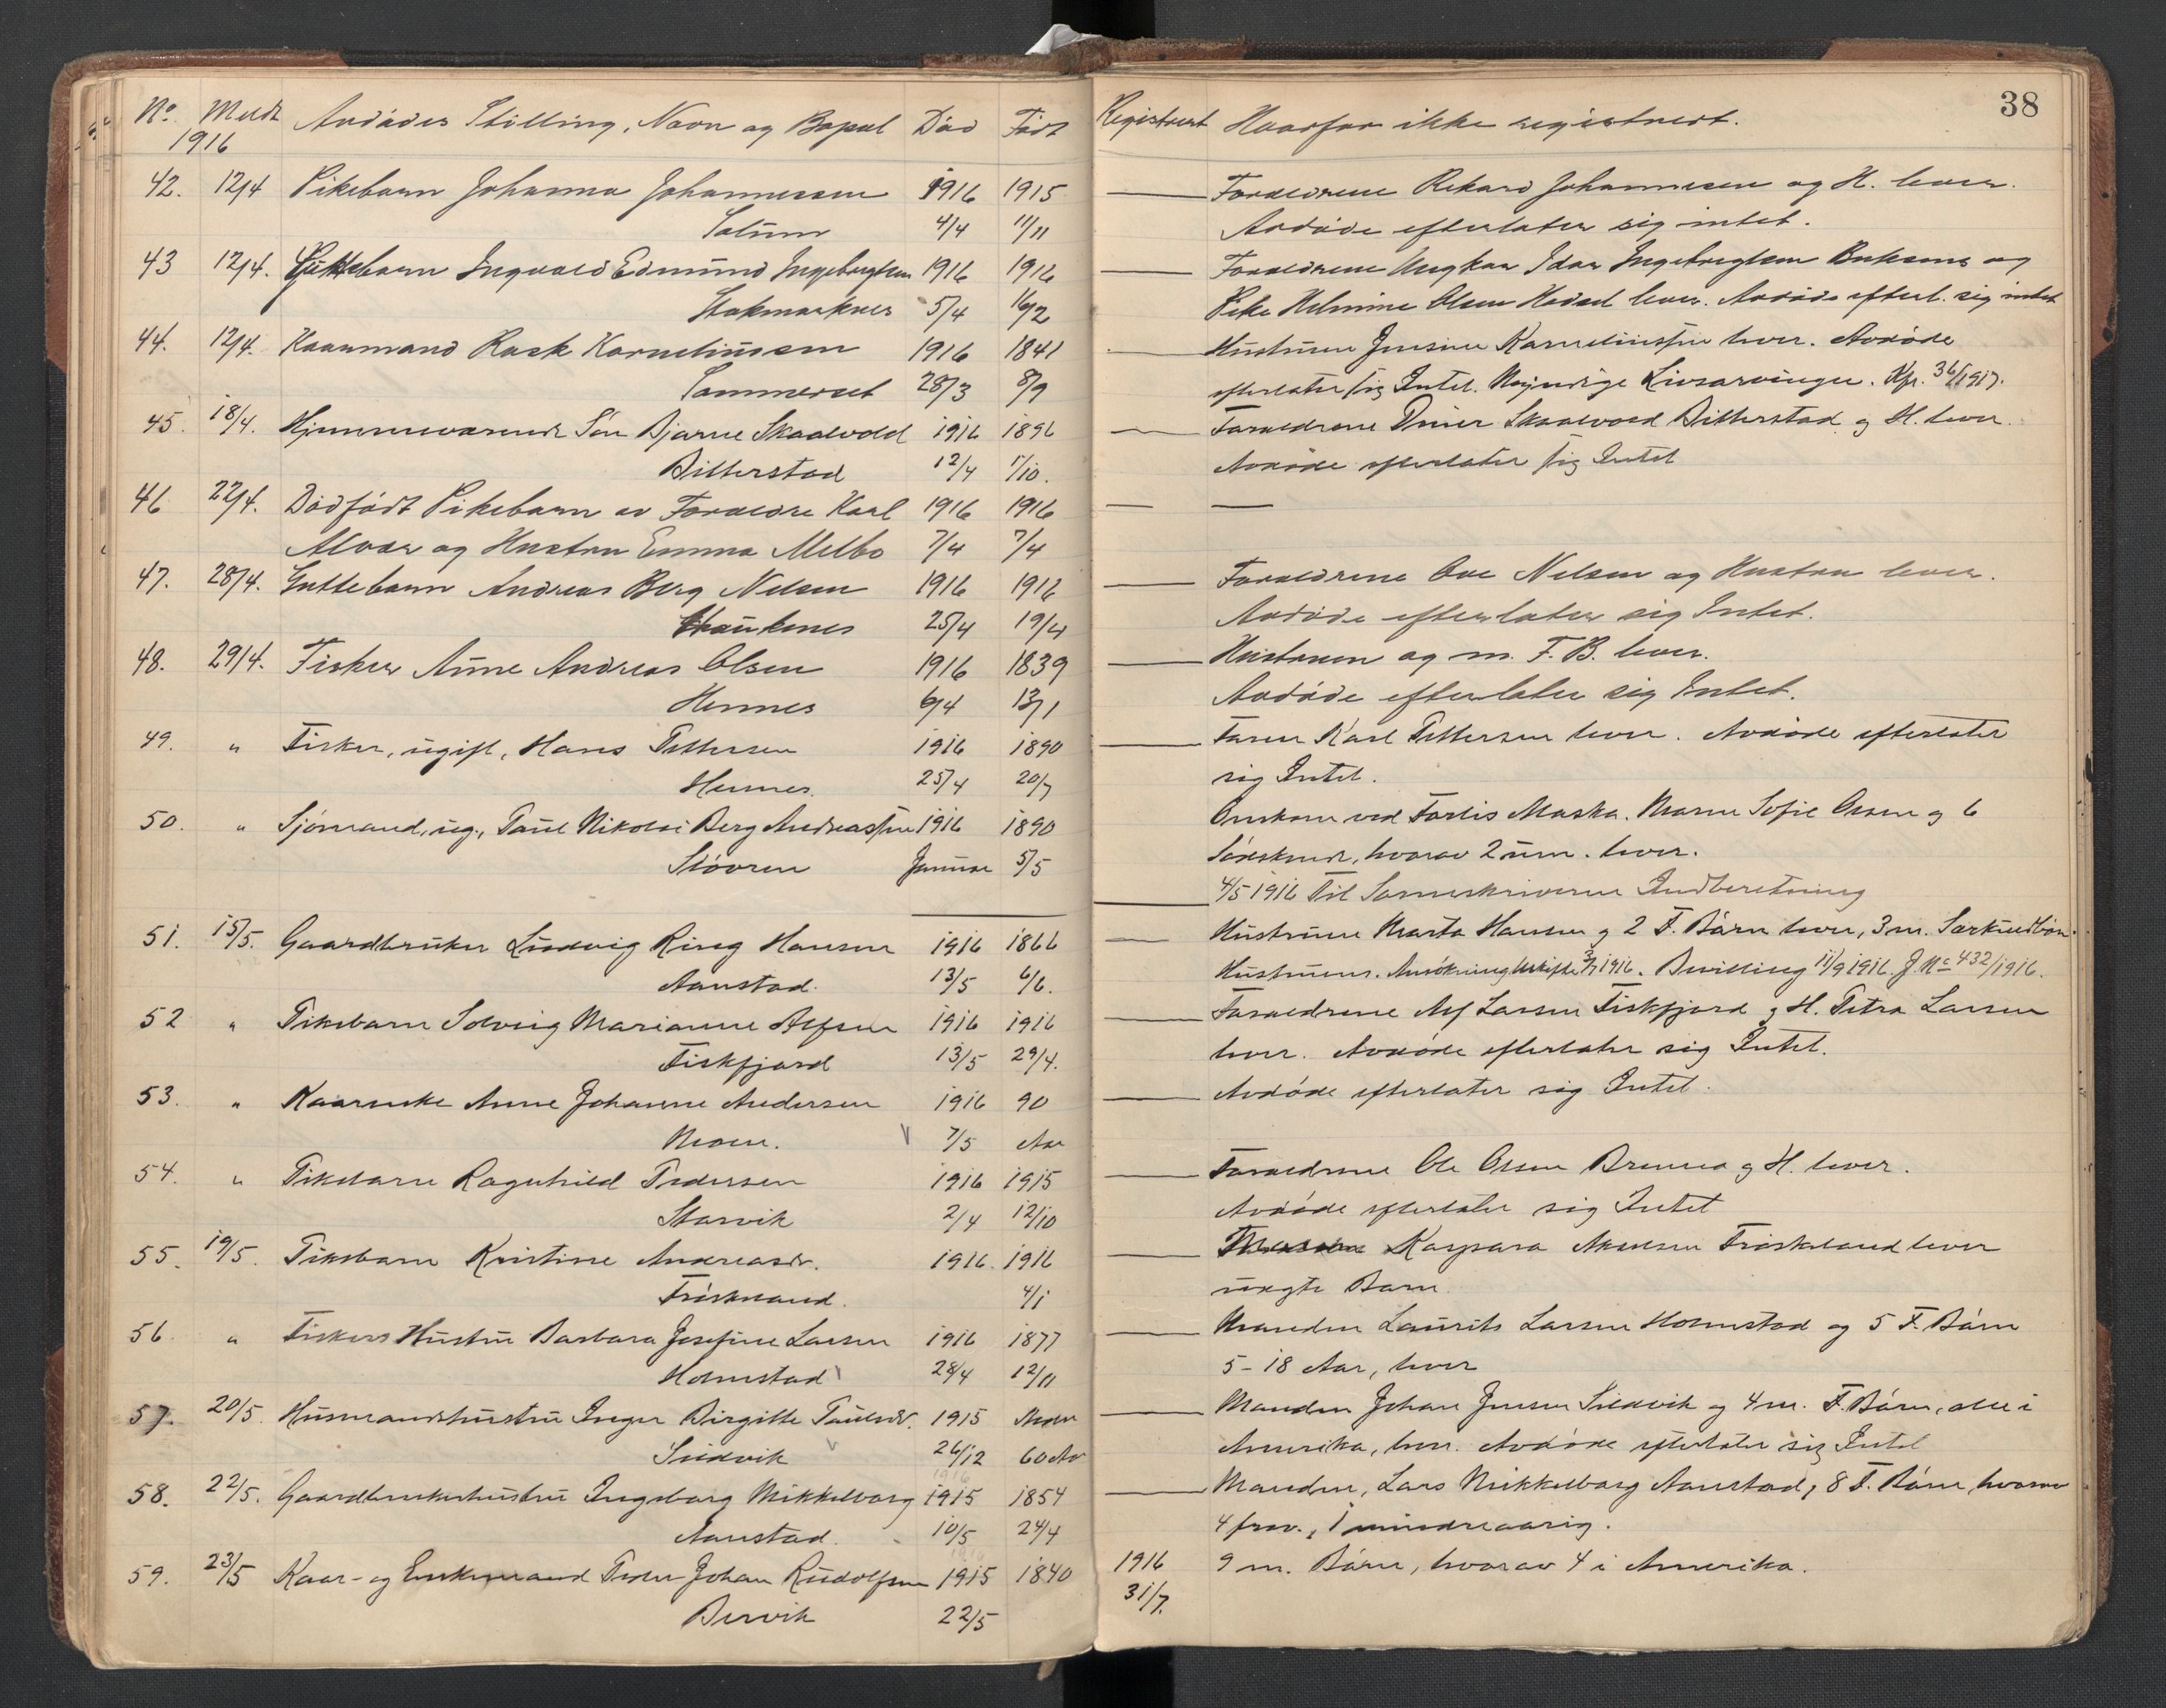 38
No. Meldt Avdødes Stilling, Navn og Bopæl Død Født Registrert Hvorfor ikke registrert.
1916
42. 12/4 Pikebarn Johanna Johannessen 1916 1915 Forældrene Rikard Johannessen og H. lever.
4/4 11/11 Avdøde efterlater sig intet.
43 12/4. Guttebarn Ingvald Edmund Ingebrigtsen 1916 1916 Forældrene Ungkar Idar Ingebrigtsen og
Stokmarknes 5/4 16/2 Pike Helmine Olsen lever. Avdøde efterl. sig intet
44. 12/4. Kaarmand Rask Korneliussen 1916 1841 Hustruen Jensine Korneliussen lever. Avdøde
Sommerset 28/3 8/9 efterlater sig Intet. Myndige Livsarvinger. Kfr. 36/1917.
45. 18/4. Hjemmeværende Søn Bjarne Skaalvold 1916 1896 Forældrene Skaalvold Bitterstad og H. lever.
Bitterstad 12/4 1/10. Avdøde efterlater sig Intet
46 22/4. Dødfødt Pikebarn av Forældre Karl 1916 1916
Alvar og Hustru Emma Melbo 7/4 7/4
47. 28/4. Guttebarn Andreas Berg Nelsen 1916 1916 Forældrene Ove Nelsen og Hustru lever.
25/4 19/4 Avdøde efterlater sig Intet.
48. 29/4. Fisker Arne Andreas Olsen 1916 1839 Hustruen og m. F. B. lever.
Hennes 6/4 13/1 Avdøde efterlater sig Intet.
49. " Fisker, ugift, Hans Pettersen 1916 1890 Faren Karl Pettersen lever. Avdøde efterlater
Hennes. 25/4 20/7 sig Intet.
50. " Sjømand, ug., Paul Nikolai Berg Andreassen 1916 1890 Omkom ved Forlis Maska. Moren Sofie Olsen og 6
Januar 5/5 Søskende, hvorav 2 um. lever.
4/5 1916 Til Sorenskriveren Indberetning
51. 15/5. Gaardbruker Ludvig Ring Hansen 1916 1866 Hustruen Marta Hansen og 2 F. Børn lever, 3 m. Særkuldbørn
Aanstad. 13/5 6/6. Hustruens. Ansøkning Uskifte 3/7 1916. Bevilling 11/9 1916. J. No 432/1916.
52 " Pikebarn Solveig Marianne Alfsen 1916 1916 Forældrene Alf Larsen Fiskfjord og H. Petra Larsen
Fiskfjord 13/5 29/4. lever. Avdøde efterlater sig Intet.
53. " Kaarenke Anne Johanne Andersen 1916 90 Avdøde efterlater sig Intet.
Moen. 7/5 Aar
54. " Pikebarn Ragnhild Pedersen 1916 1915 Forældrene Ole Olsen og H. lever.
Storvik 2/4 12/10 Avdøde efterlater sig Intet
55. 19/5. Pikebarn Kristine Andreasdr. 1916. 1916 Kaspara Frøskeland lever
Frøskeland. 4/1 uægte Barn.
56 " Fiskers Hustru Barbara Josefine Larsen 1916 1877 Manden Laurits Larsen Holmstad og 5 F. Børn
Holmstad 28/4 12/11 5-18 Aar, lever
57. 20/5. Husmandshustru Inger Birgitte Paulsdr. 1915 Manden Johan Jensen Sildvik og 4 m. F. Børn, alle i
Sildvik 26/12 60 Aar Amerika, lever. Avdøde efterlater sig Intet
58. 22/5. Gaardbrukerhustru Ingeborg Mikkelborg 1915 1854 Manden, Lars Mikkelborg Aanstad, 8 F. Børn, hvorav
Aanstad. 10/5 24/4 4 frav., 1 mindreaarig.
59. 23/5 Kaar- og Enkemand Peder Johan Rudolfsen 1915 1840 1916 9 m. Børn, hvorav 4 i Amerika.
Bervik 22/5 31/7.